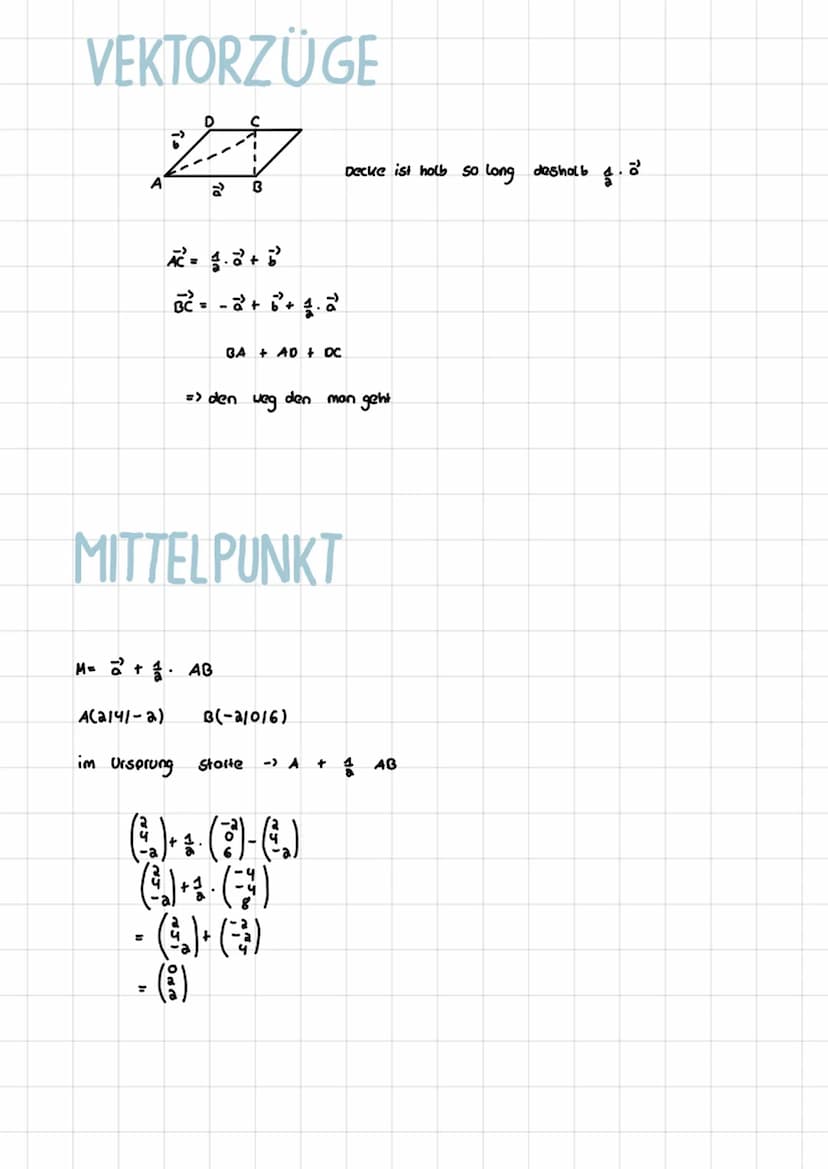 VEKTORZÜGE
D C
b⃗
Decke ist halb so lang deshalb 1/2 · a⃗
A a⃗ B
AC⃗ = 1/2 · a⃗ + b⃗
BC⃗ = - a⃗ + b⃗ + 1/2 · a⃗
BA + AD + DC
=> den weg den man geht
MITTELPUNKT
M= a⃗ + 1/2 · AB
A(2|4|-2) B(-2|0|6)
im Ursprung starte -> A + 1/2 AB
(2 4 -2) + 1/2 · (-2 0 6) - (2 4 -2)
(2 4 -2) + 1/2 · (-4 -4 8)
= (2 4 -2) + (-2 -2 4)
= (0 2 2)